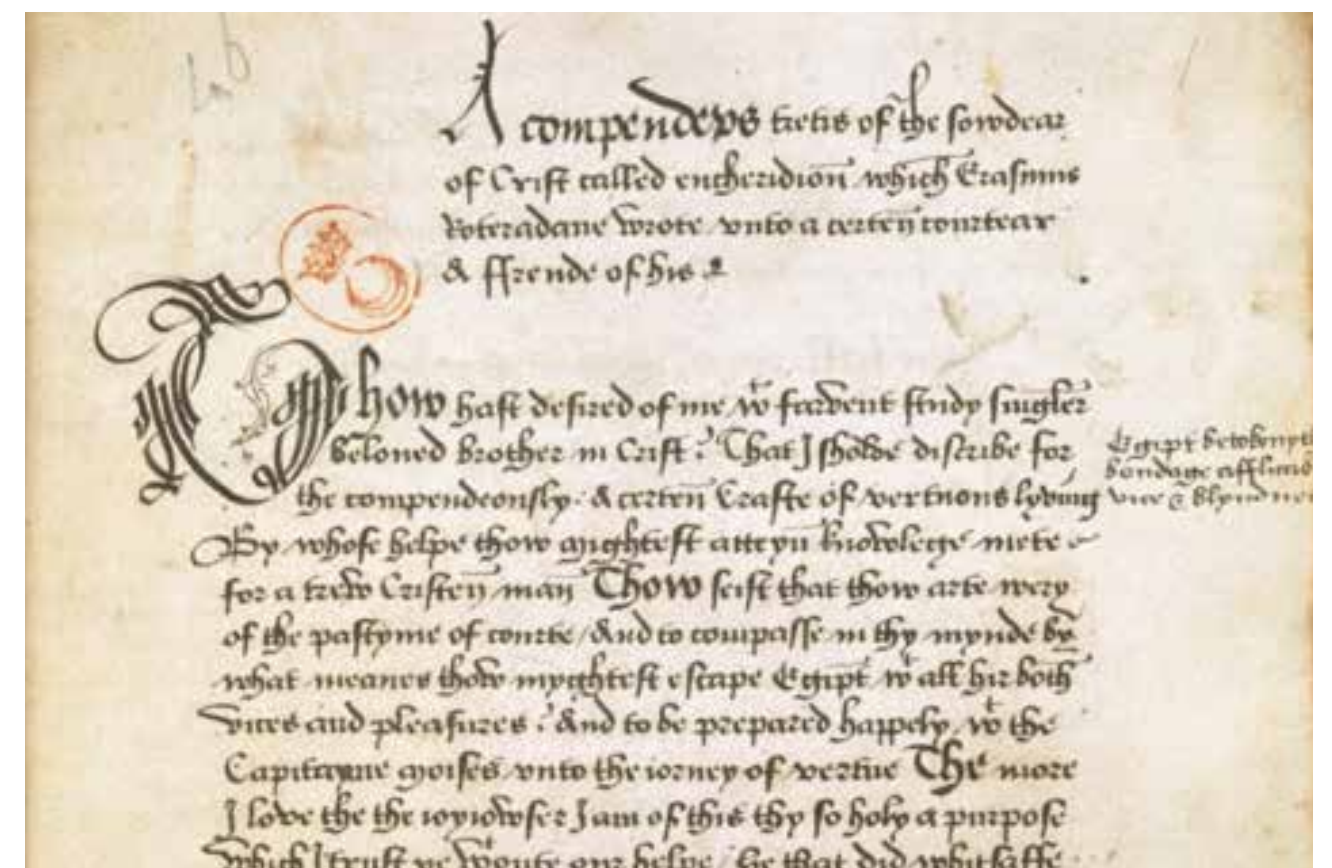 A compendevs tretis of the sowdear
of Crist called encheridion which Erasmus
Roteradame wrote vnto a certen courtear
& ffrende of his
Thow hast desired of me wt farvent study singler
beloued brother in Crist / That I sholde discribe for
the compendeously a certen Crafte of vertuous lyving
By whose helpe thow myghtest atteyn knowlege mete
for a trew Cristen man Thow seist that thow arte wery
of the pastyme of courte / And to compasse in thy mynde by
what meanes thow myghtest escape Egipt wt all hir both
vices and pleasures / And to be prepared happely wt the
Capitayne moises vnto the iorney of vertue The more
I love the the ioyiowser I am of this thy so holy a purpose
which I trust ye woute our helpe / he that did
Egipt betokenyth
bondage
vice & blyndnes